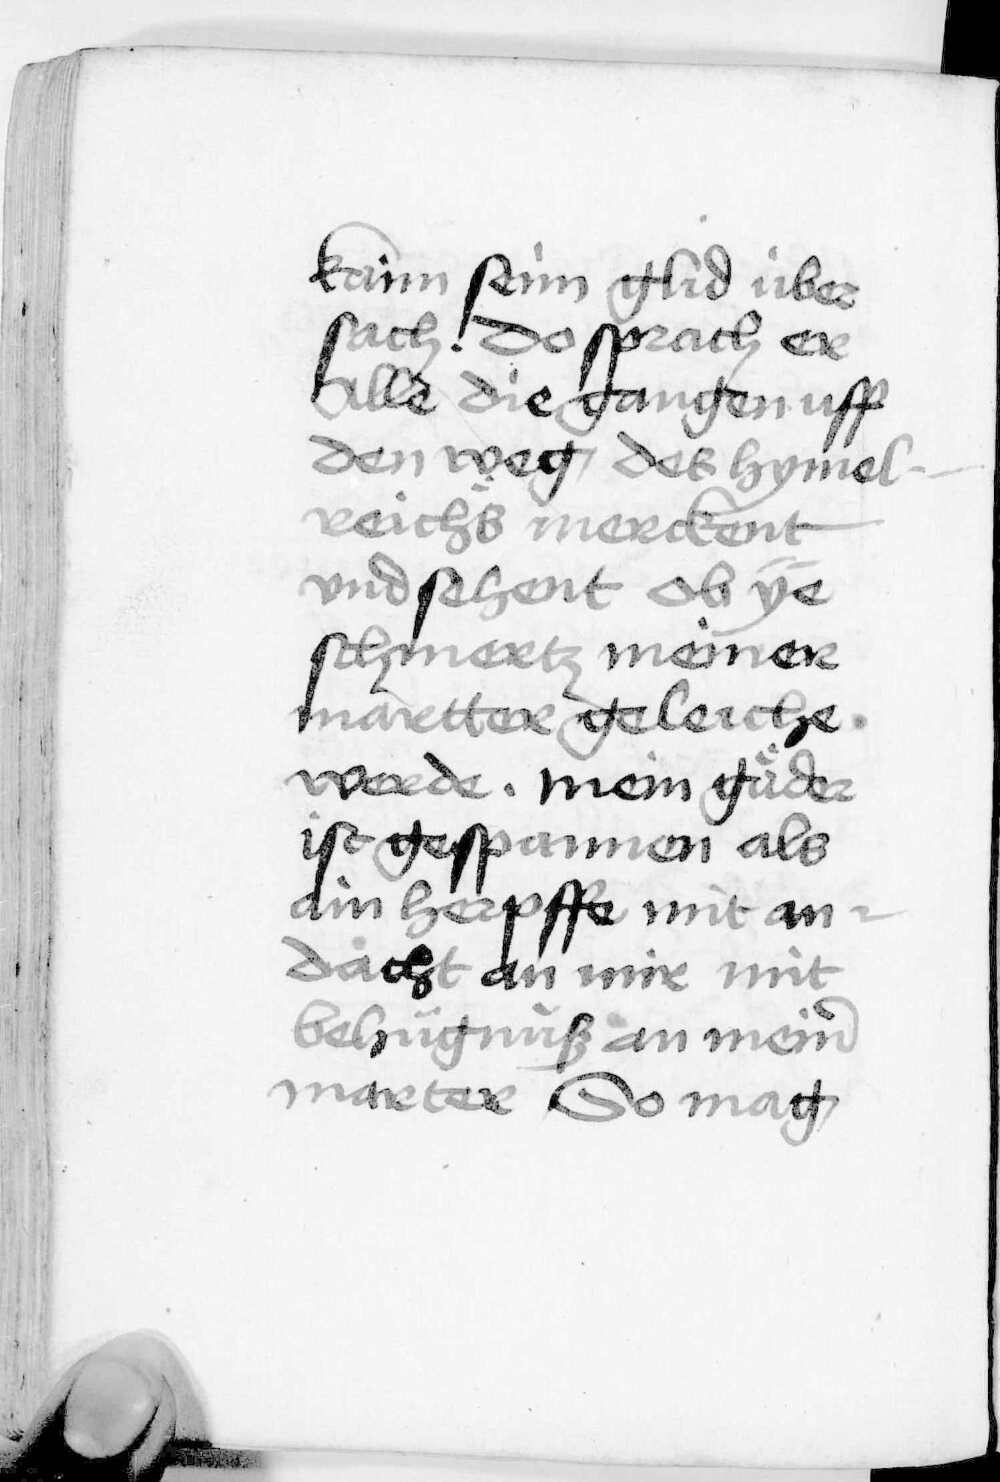 kainn seinn glid über
sach! Do sprach er
alle die gangen uff
den weg des hymel-
reichs merckent
vnd sehent ob ÿe
schmertz meiner
martter geleiche.
werde. mein gäder
ist gespannen als
ain herpffe mit an-
dächt an mir mit
behügnüß an mein̄
marter So mag